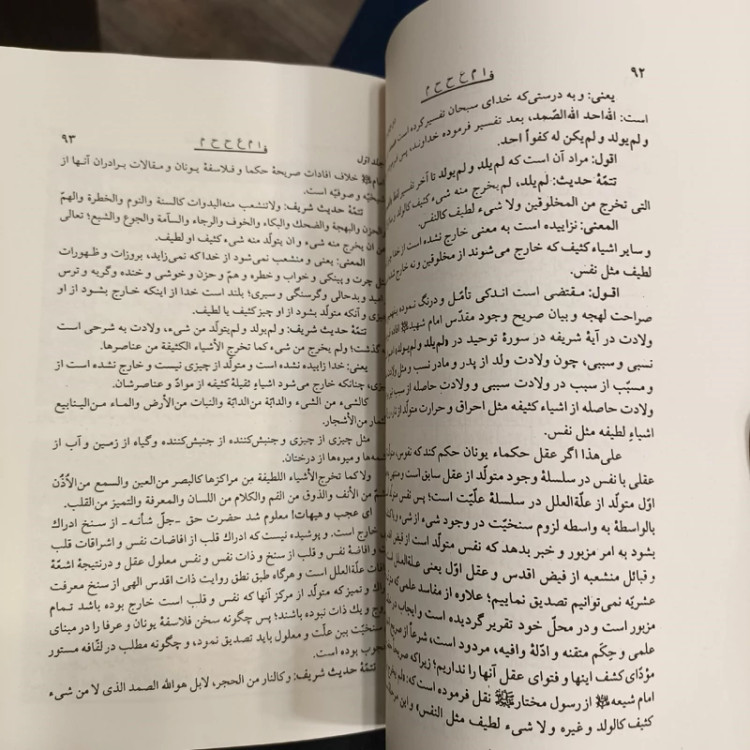 ۹۲
ف ا م خ ح ح م
یعنی: و به درستی‌که خدای سبحان تفسیر کرده است
است: الله احد الله الصّمد، بعد تفسیر فرموده خداوند
و لم یولد و لم یکن له کفواً احد.
اقول: مراد آن است که لم یلد و لم یولد تا آخر تفسیر
تتمّهٔ حدیث: لم یلد، لم یخرج منه شیء کثیف کالولد و
التی تخرج من المخلوقین ولا شیء لطیف کالنفس.
المعنی: نزاییده است به معنی خارج نشده است از
و سایر اشیاء کثیف که خارج می‌شوند از مخلوقین و نه خارج
لطیف مثل نفس.
اقول: مقتضی است اندکی تأمّل و درنگ نموده
صراحت لهجه و بیان صریح وجود مقدّس امام شهید
ولادت در آیهٔ شریفه در سورهٔ توحید در «لم یلد و لم یولد»
نسبی و سببی، چون ولادت ولد از پدر و مادر نسب و مثل
و مسبّب از سبب در ولادت سببی و ولادت حاصله از سبب
ولادت حاصله از اشیاء کثیفه مثل احراق و حرارت متولّد از
اشیاءِ لطیفه مثل نفس.
علی‌هذا اگر عقل حکماء یونان حکم کند که نفوس
عقلی با نفس در سلسلهٔ وجود متولّد از عقل سابق است و
اوّل متولد از علّة‌العلل در سلسلهٔ علّیّت است؛ پس نفس
بالواسطة به واسطه لزوم سنخیّت در وجود شیء از شیء
شود به امر مزبور و خبر بدهد که نفس متولّد است از
و قبائل منشعبه از فیض اقدس و عقل اوّل یعنی علة‌العلل
عشریّه نمی‌توانیم تصدیق نماییم؛ علاوه از مفاسد علمی که
مزبور است و در محلّ خود تقریر گردیده است و ایجاب در
علمی و حِکَم متقنه و ادلّهٔ وافیه، مردود است، شرعاً از
مؤدّای کشف اینها و فتوای عقل آنها را نداریم؛ زیرا که
امام شیعه از رسول مختار نقل فرموده است که:
کثیف کالولد و غیره و لا شیء لطیف مثل النفس» و این
۹۳
ف ا م خ ح ح م
جلد اوّل
امام خلاف افادات صریحهٔ حکما و فلاسفهٔ یونان و مقالات برادران آنها از
و صوفیّه است.
تتمّهٔ حدیث شریف: ولا تنشعب منه البدوات کالسنة والنوم والخطرة والهمّ
والحزن والبهجة والضحك والبکاء والخوف والرجاء والسآمة والجوع والشبع؛ تعالی
من ان یخرج منه شیء و ان یتولّد منه شیء کثیف او لطیف.
المعنی: یعنی و منشعب نمی‌شود از خدا که نمی‌زاید، بروزات و ظهورات
مثل چرت و پینکی و خواب و خطره و هم و حزن و خوشی و خنده و گریه و ترس
امید و بدحالی و گرسنگی و سیری؛ بلند است خدا از اینکه خارج بشود از او
چیزی و آنکه متولّد بشود از او چیز کثیف یا لطیف.
تتمّهٔ حدیث شریف: و لم یولد و لم یتولّد من شیء، ولادت به شرحی است
که گذشت؛ ولم یخرج من شیء کما تخرج الأشیاء الکثیفة من عناصرها.
یعنی: خدا زاییده نشده است و متولّد از چیزی نیست و خارج نشده است از
چیزی، چنانکه خارج می‌شود اشیاءِ ثقیلهٔ کثیفه از موادّ و عناصرشان.
کالشیء من الشیء والدابّة من الدابّة والنبات من الأرض والماء من الینابیع
والثمار من الأشجار.
مثل چیزی از چیزی و جنبش‌کننده از جنبش‌کننده و گیاه از زمین و آب از
چشمه‌ها و میوه‌ها از درختان.
ولا کما تخرج الأشیاء اللطیفة من مراکزها کالبصر من العین والسمع من الأُذُن
والشمّ من الأنف والذوق من الفم والکلام من اللسان والمعرفة والتمیز من القلب.
ای عجب و هیهات! معلوم شد حضرت حق -جلّ شأنه- از سنخ ادراك
خارج است. و پوشیده نیست که ادراك قلب از افاضات نفس و اشراقات قلب
است و افاضهٔ نفس و قلب از سنخ و ذات نفس و نفس معلول عقل و در نتیجهٔ اشعّهٔ
افاضات علّة‌العلل است و هرگاه طبق نطق روایت ذات اقدس الهی از سنخ معرفت
ادراك و تمیز که متولد از مرکز آنها که نفس و قلب است خارج بوده باشد تمام
و یك ذات نبوده باشند؛ پس چگونه سخن فلاسفهٔ یونان و عرفا را در مبنای
سنخیّت بین علّت و معلول باید تصدیق نمود، و چگونه مطلب در لفّافه مستور
محجوب بوده است.
تتمّهٔ حدیث شریف: وکالنار من الحجر، لابل هوالله الصمد الذی لا من شیء